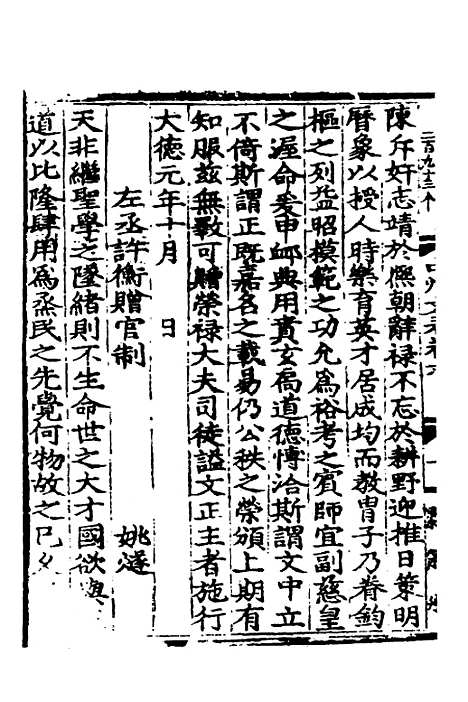 陳斥奸志靖於熈朝辭禄不忘於耕野迎推日策明
暦象以授人時樂育英才居成均而教胄子乃眷鈞
樞之列益昭模範之功允爲裕考之賓師宜副慈皇
之渥命爰申邮典用賁玄扃道德愽洽斯謂文中立
不倚斯謂正既嘉名之載易仍公秩之榮頒上期有
知服兹無斁可贈榮禄大夫司徒謚文正主者施行
大德元年十月　日
左丞許衡贈官制　姚燧
天非繼聖學之墜緒則不生命世之大才國欲興
道以比隆肆用爲烝民之先覺何物故之已
二百九十三个